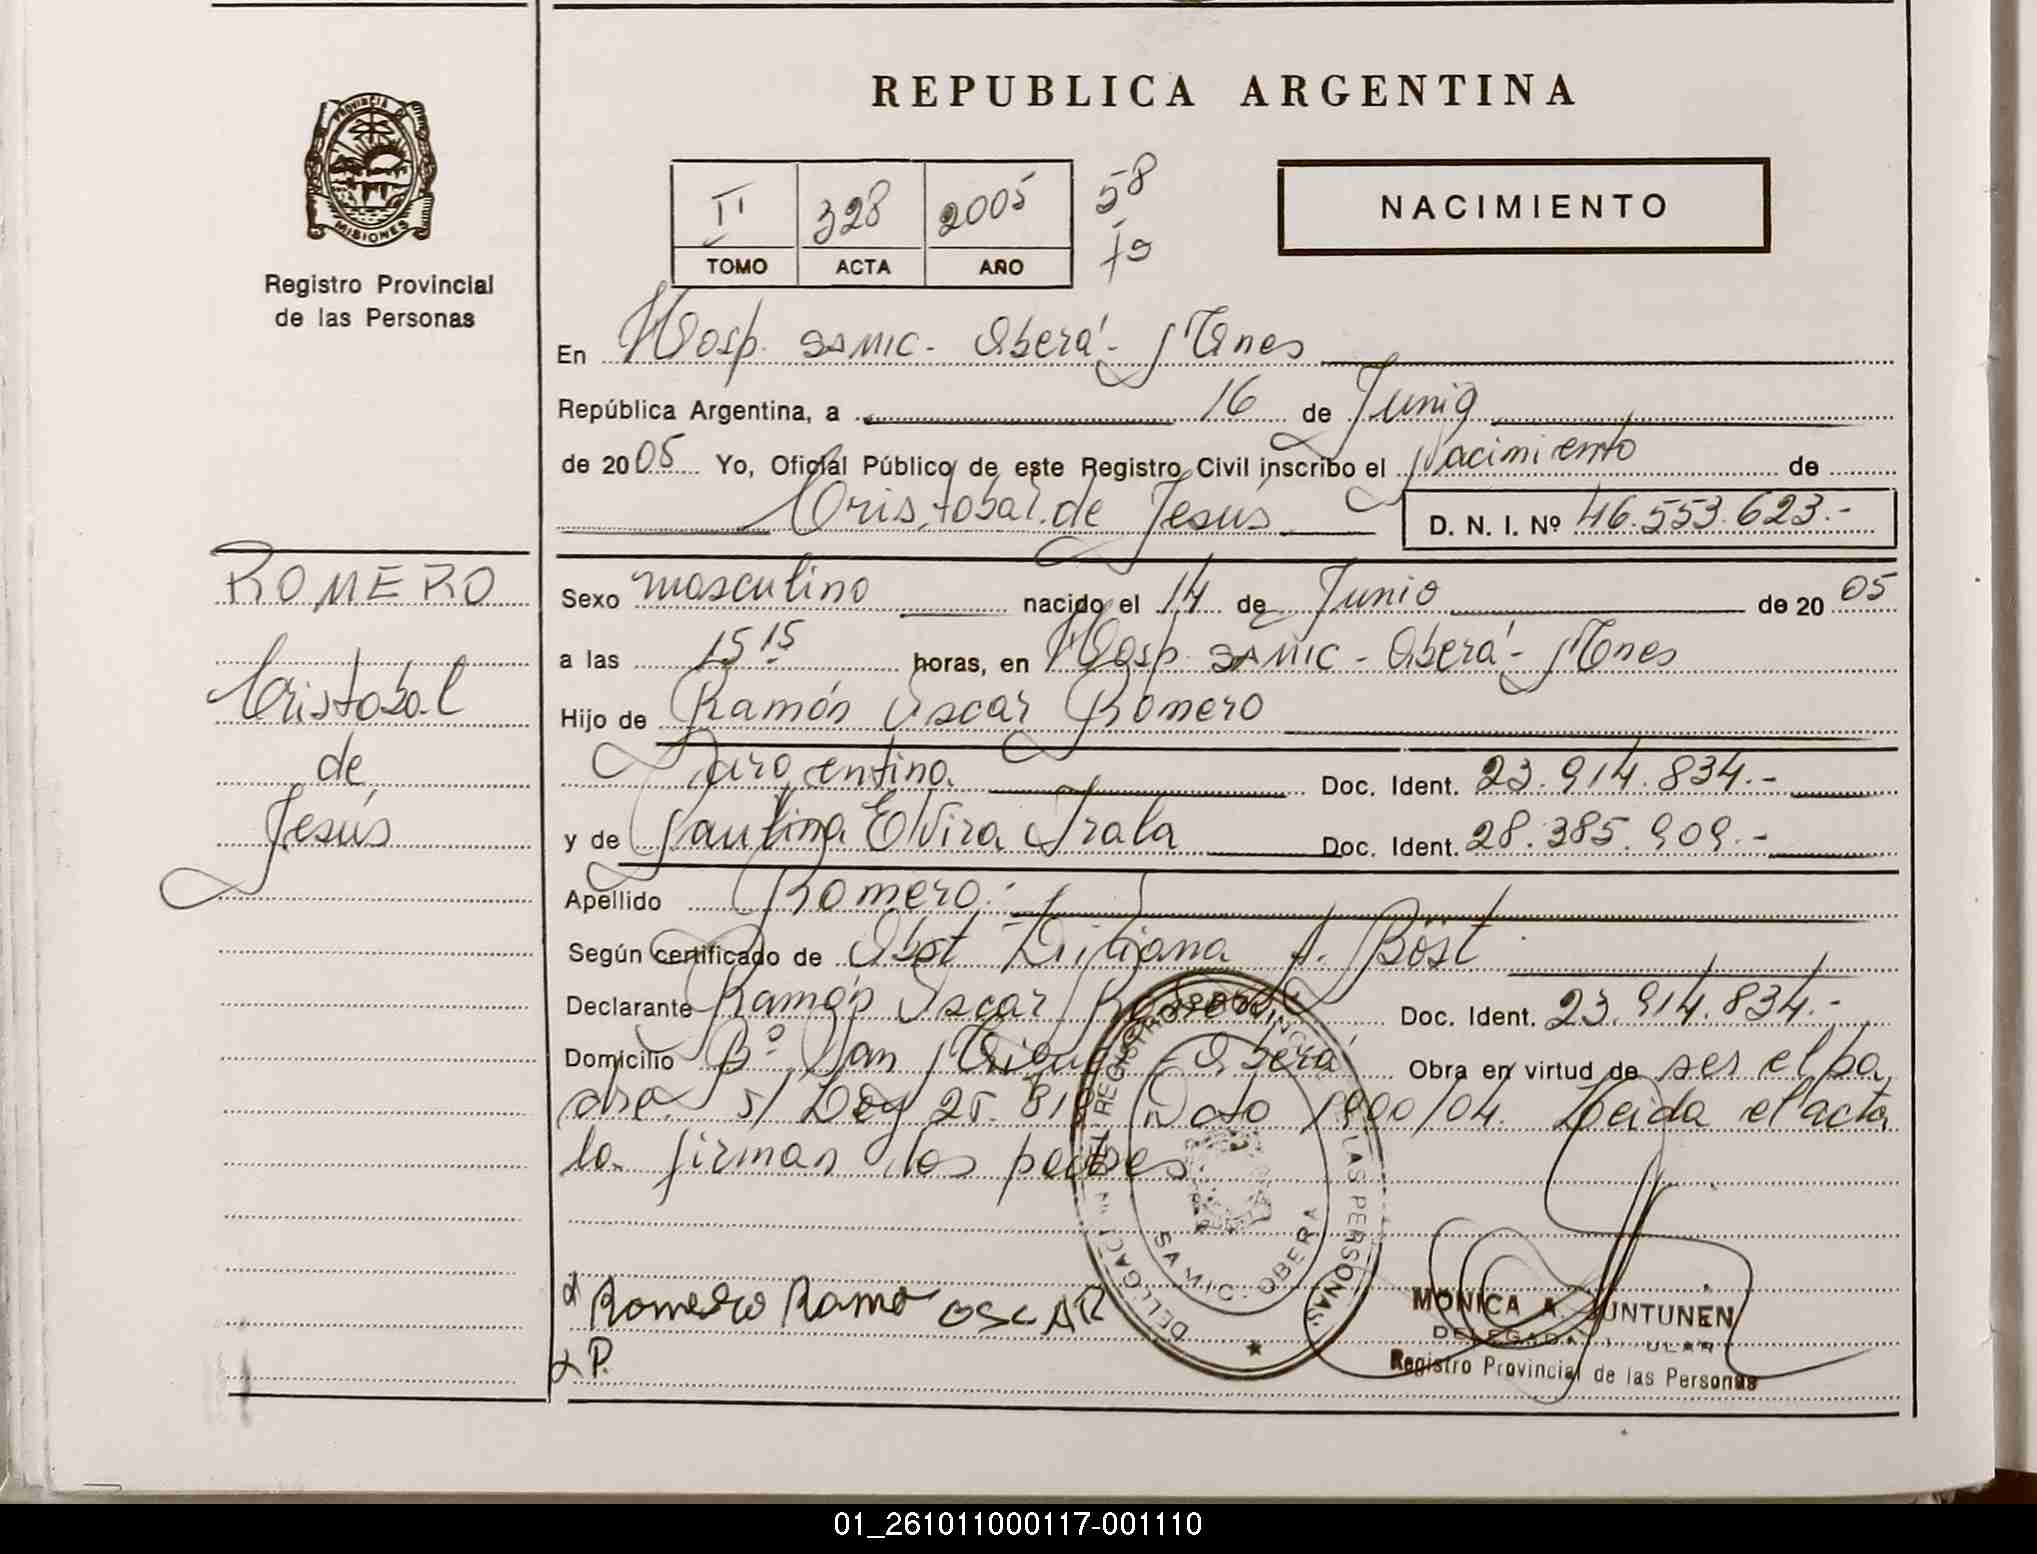 REPUBLICA ARGENTINA
PROVINCIA DE
MISIONES
Registro Provincial
de las Personas
II 328 2005 58
TOMO ACTA AÑO
NACIMIENTO
En Hosp. SAMIC - Oberá - Mnes
República Argentina, a 16 de Junio
de 2005 Yo, Oficial Público de este Registro Civil inscribo el Nacimiento de
Cristobal de Jesús D. N. I. Nº 46.553.623.-
ROMERO
Cristobal
de
Jesús
Sexo masculino nacido el 14 de Junio de 2005
a las 15 15 horas, en Hosp SAMIC - Oberá - Mnes
Hijo de Ramón Oscar Romero
argentino Doc. Ident. 23.914.834.-
y de Paulina Elvira Irala Doc. Ident. 28.385.909.-
Apellido Romero.-
Según certificado de Obst. Liliana A. Böst
Declarante Ramón Oscar Romero Doc. Ident. 23.914.834.-
Domicilio Bº San Miguel - Oberá Obra en virtud de ser el pa
dre. s/ Ley 25.819 Dcto 1900/04. Leida el acta
la firman los padres
DELEGACION REGISTRO PROVINCIAL DE LAS PERSONAS
SAMIC - OBERA
Romero Ramo OSCAR
P.
MONICA A. JUNTUNEN
DELEGADA TITULAR
Registro Provincial de las Personas
01_261011000117-001110